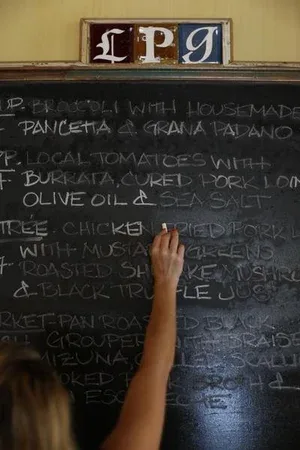 L P g
P. BROCCOLI WITH HOUSEMADE
PANCETTA & GRANA PADANO
P. LOCAL TOMATOES WITH
BURRATA, CURED PORK LOIN
OLIVE OIL & SEA SALT
TREE. CHICKEN FRIED PORK
WITH MUSTARD GREENS
ROASTED SHIITAKE MUSHR
& BLACK TRUFFLE JUS
RKET. PAN ROASTED BLACK
GROUPER WITH BRAISE
MIZUNA, SCALL
OKED BROTH &
ESCE